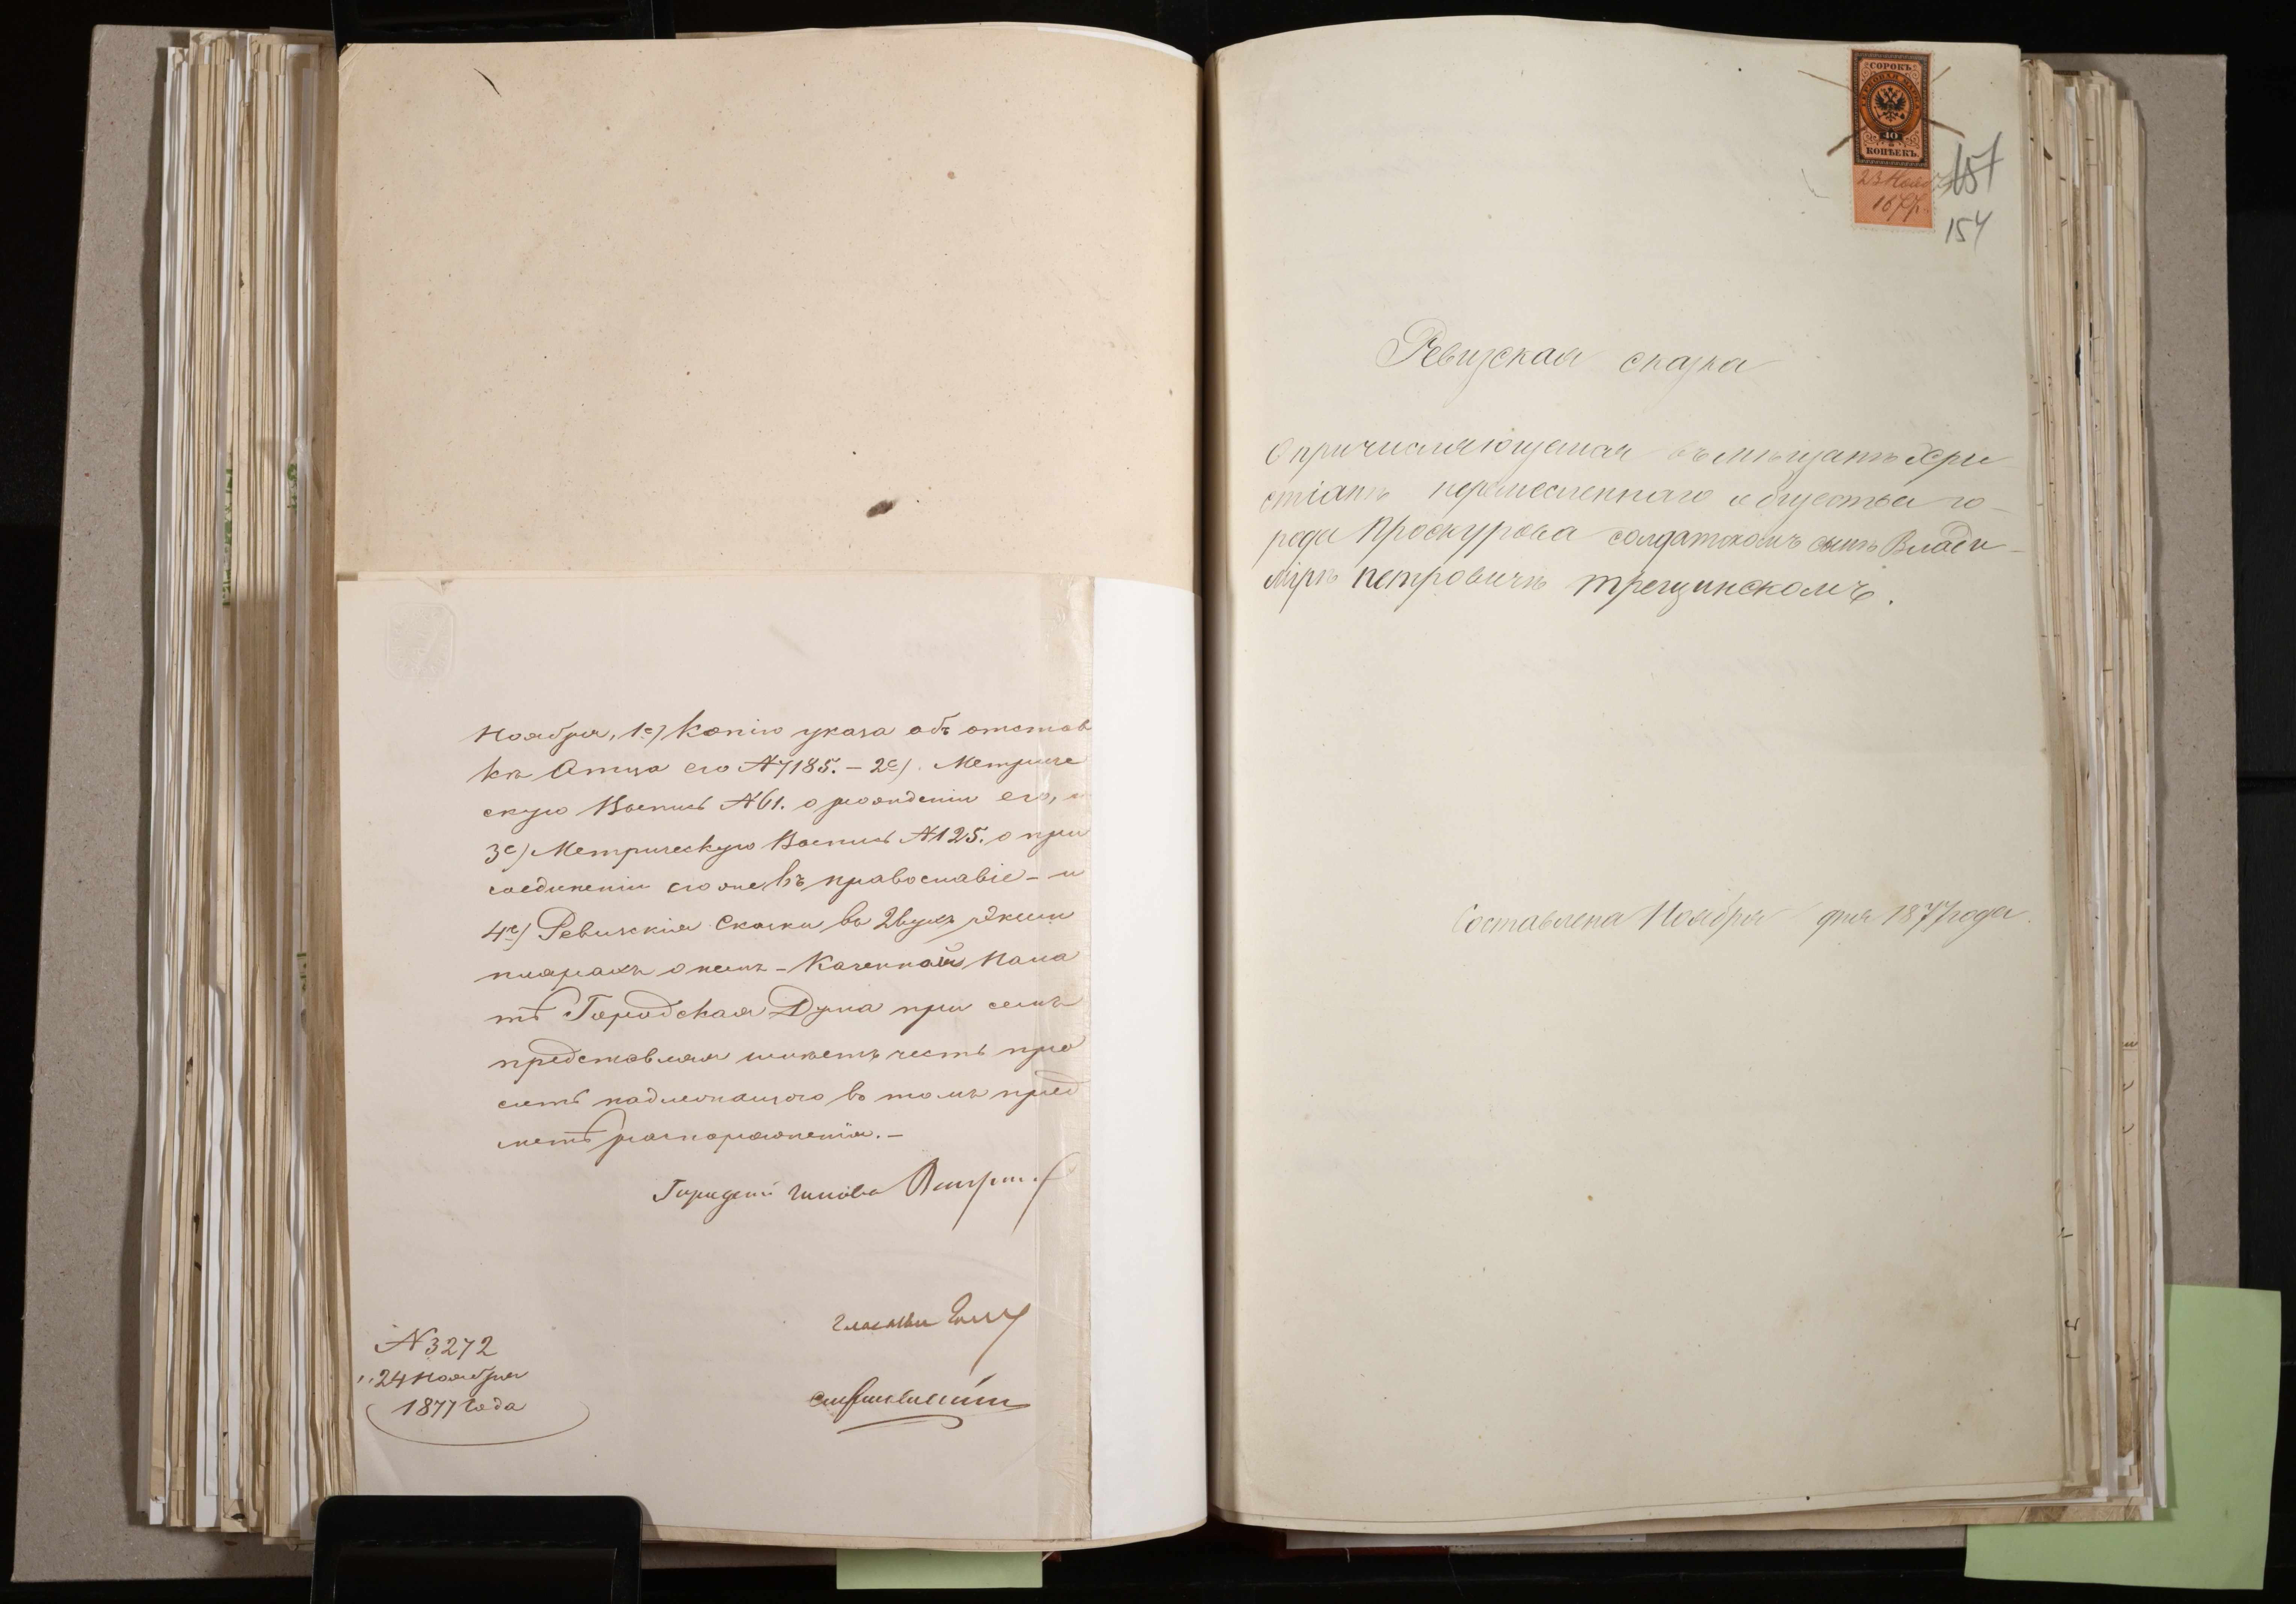 Ноября, 1е) Копію указа объ отстав
кѣ Отца его №7185. – 2е). Метриче
скую Выпись №61. о рожденіи его, и
3е) Метрическую Выпись №125. о при
соединеніи его же въ православіе – и
4е) Ревизкія Сказки въ 2вухъ экзем
плярахъ о немъ – Казенной Пала
тѣ Городская Дума при семъ
представляя имѣетъ честь про
сить надлежащаго въ томъ пред
метѣ распоряженія. –
Городской Голова
Гласный
№3272
„24 Ноября
1877 Года
СОРОКЪ
ГЕРБОВАЯ МАРКА
40
КОПѢЕКЪ.
23 Нояб
1877г.
157
154
Ревизская сказка
О причисляющемся въ мѣщане Хри
стіанъ неремесленнаго общества го-
рода Проскурова солдатскомъ сынѣ Влади-
мірѣ Петровичѣ Трещинскомъ.
Составлена Ноября дня 1877 года.